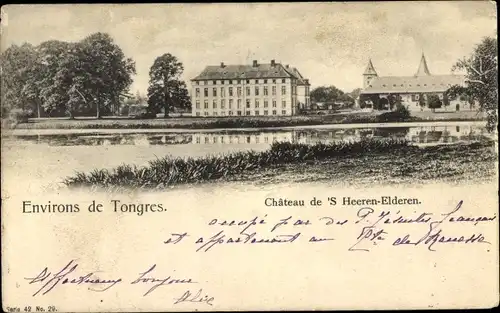 Environs de Tongres.
Château de 'S Heeren-Elderen.
occupé par des P. Jésuites français
et appartenant au Cte de Renesse
Affectueux bonjour
Alice
Serie 42 No. 29.